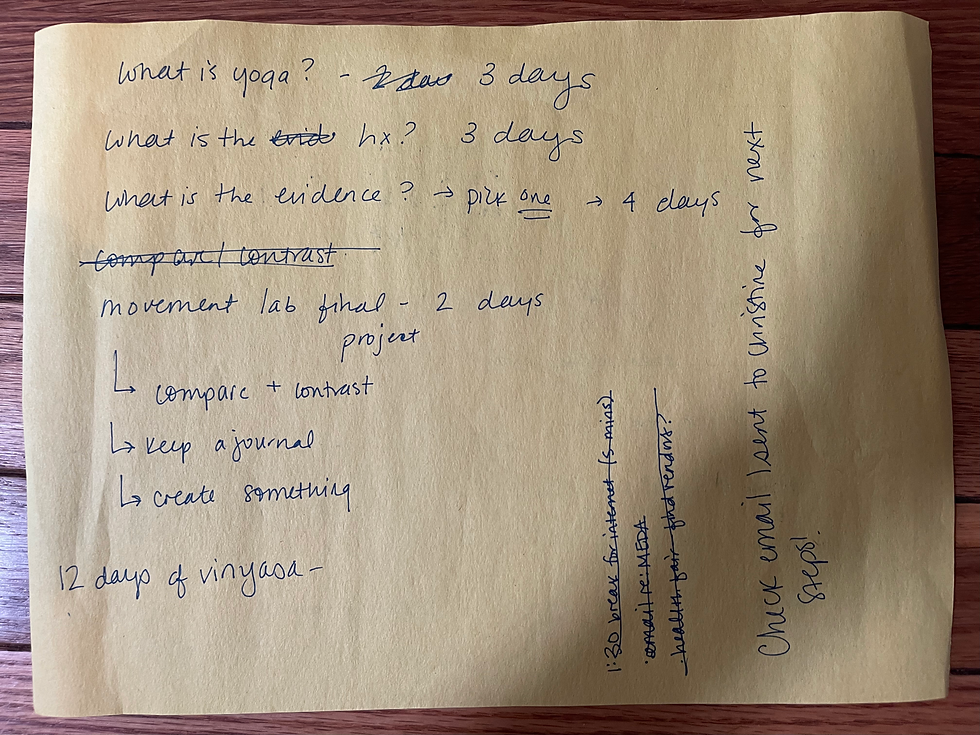 What is yoga? - 2 days 3 days
What is the evid hx? 3 days
What is the evidence? → pick one → 4 days
compare / contrast
movement lab final - 2 days
project
↳ compare + contrast
↳ keep a journal
↳ create something
12 days of vinyasa -
1:30 break for internet (5 mins)
· email re: MEDA
- health fair - find vendors?
Check email I sent to Christine for next
steps!